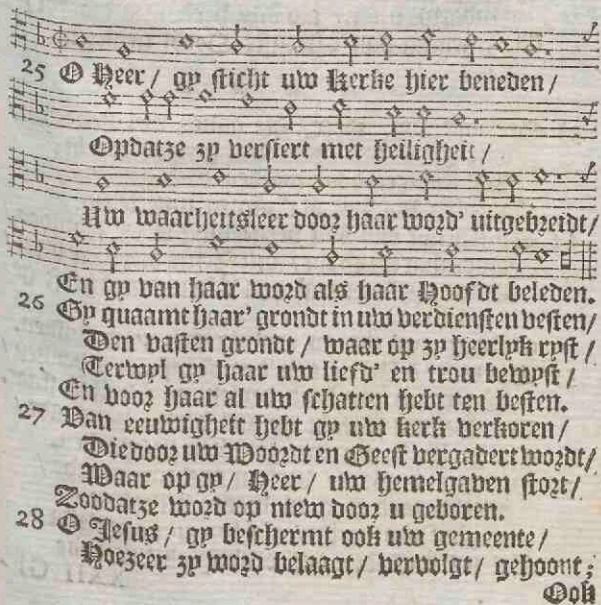 25 O Heer / gy sticht uw Kerke hier beneden /
Opdatze zy versiert met heiligheit /
Uw waarheitsleer door haar word' uitgebreidt /
En gy van haar word als haar Hoofdt beleden.
26 Gy quaamt haar' grondt in uw verdiensten vesten /
Den vasten grondt / waar op zy heerlyk ryst /
Terwyl gy haar uw liefd' en trou bewyst /
En voor haar al uw schatten hebt ten besten.
27 Van eeuwigheit hebt gy uw kerk verkoren /
Die door uw Woordt en Geest vergadert wordt /
Waar op gy / Heer / uw hemelgaven stort /
Zoodatze word op niew door u geboren.
28 O Jesus / gy beschermt ook uw gemeente /
Hoezeer zy word belaagt / vervolgt / gehoont;
Ook